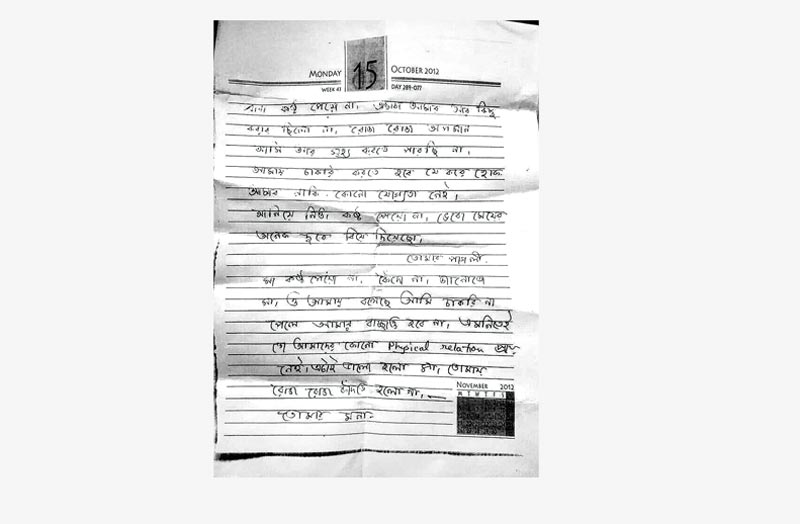 MONDAY 15 OCTOBER 2012
WEEK 41 DAY 289-077
বাবা কষ্ট পেয়ো না, এছাড়া আমার আর কিছু
করার ছিলো না, রোজ রোজ অপমান
আমি আর সহ্য করতে পারছি না,
আমায় চাকরি করতে হবে যে করে হোক
আমার নাকি কোনো যোগ্যতা নেই,
মানিয়ে নিও, কষ্ট পেয়ো না, ভেবো মেয়ের
অনেক দূরে বিয়ে দিয়েছো,
তোমার পাগলী.
মা কষ্ট পেয়ো না, কেঁদো না, জানোতো
মা, ও আমায় বলেছে আমি চাকরি না
পেলে আমার বাচ্চাও হবে না, এমনিতেই
তো আমাদের কোনো Physical relation
নেই, এটাই ভালো হলো মা, তোমায়
রোজ রোজ কাঁদতে হলো না,
তোমার মনা-
NOVEMBER 2012
M T W T F S S